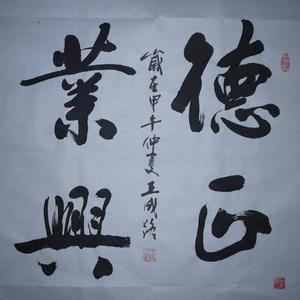 德正
業興
歲在甲午仲夏王成